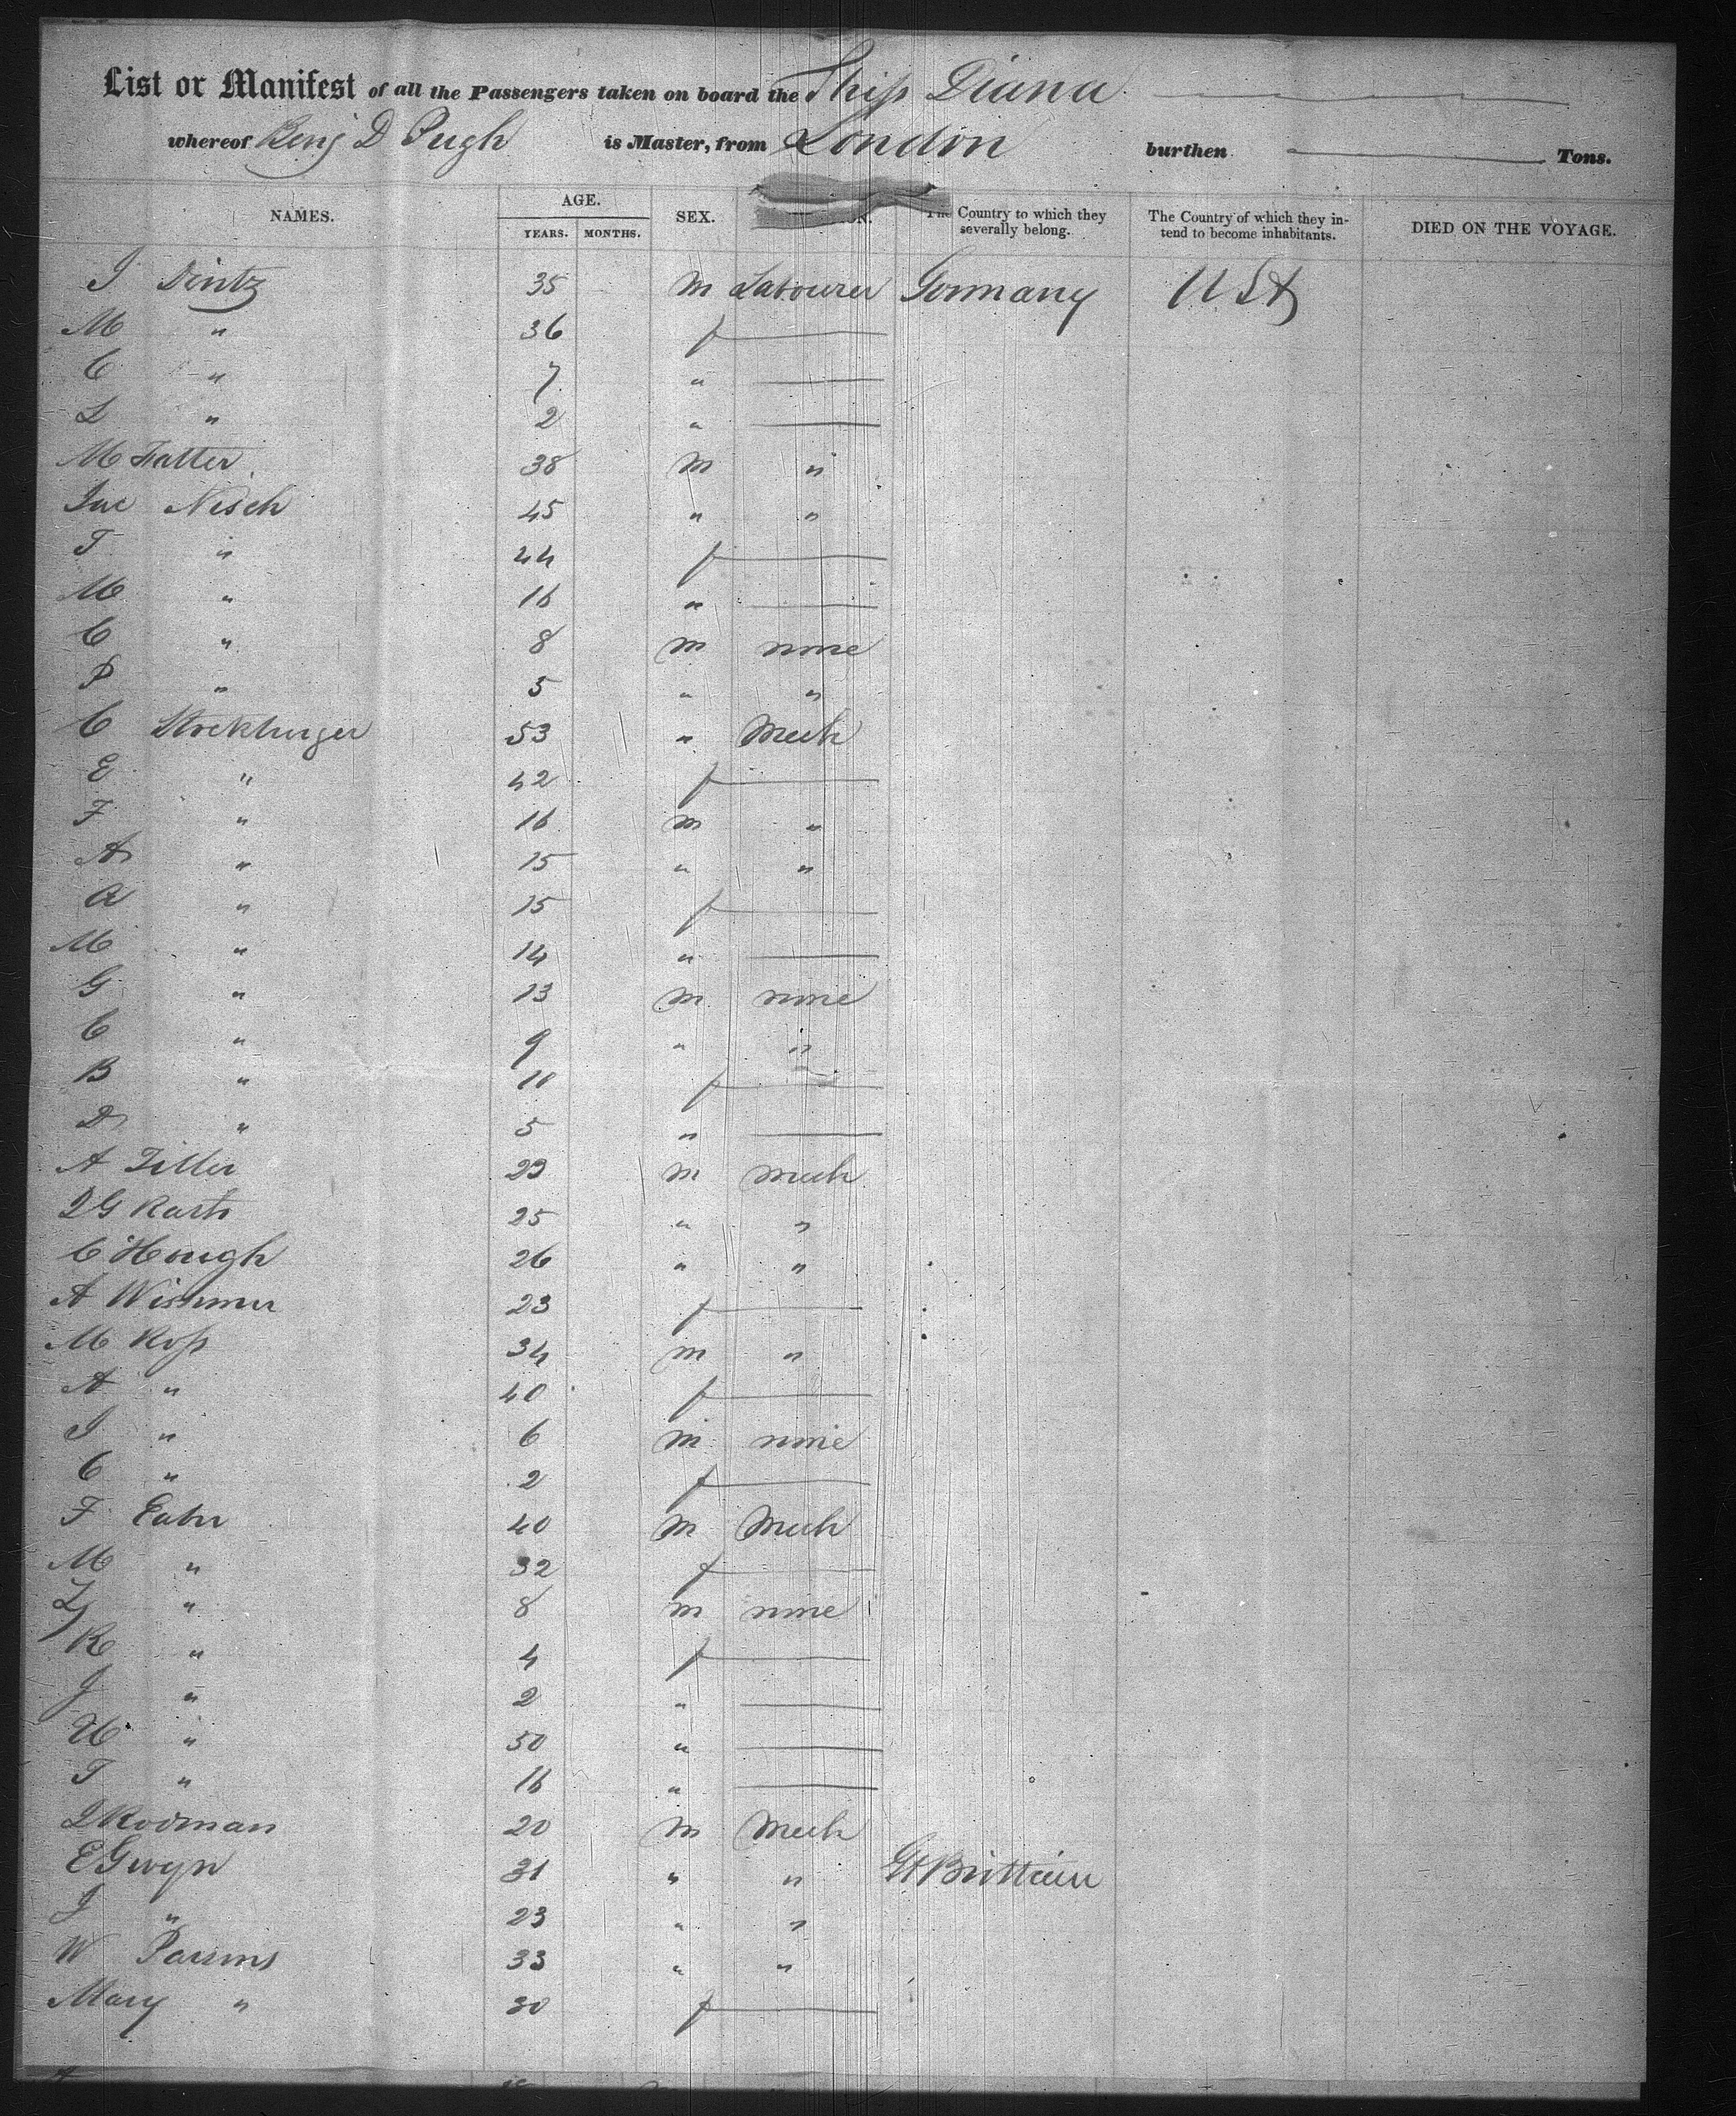 List or Manifest of all the Passengers taken on board the Ship Diana
whereof Benj D Pugh is Master, from London burthen Tons.
NAMES. AGE. YEARS. MONTHS. SEX. The Country to which they severally belong. The Country of which they intend to become inhabitants. DIED ON THE VOYAGE.
J Dintz 35 m Labourer Germany USA
M " 36 f
C " 7 "
L " 2 "
M Fatter 38 m "
Jac Nisch 45 " "
T " 44 f
M " 16 "
C " 8 m none
P " 5 " "
C Strekburger 53 " Mech
E " 42 f
F " 16 m "
A " 15 " "
A " 15 f
M " 14 "
G " 13 m none
C " 9 " "
B " 10 f
D " 5 "
A Tiller 29 m mech
J G Karts 25 " "
C Hough 26 " "
A Wismer 23 f
M Ross 34 m "
A " 40 f
J " 6 m none
C " 2 f
F Eaber 40 m Mech
M " 32 f
" 8 m none
R " 4 f
J " 2 "
U " 50 "
T " 16 "
J Rodman 20 m Mech
E Gwyn 31 " " Gt Brittain
J " 23 " "
W Parsons 33 " "
Mary " 30 f